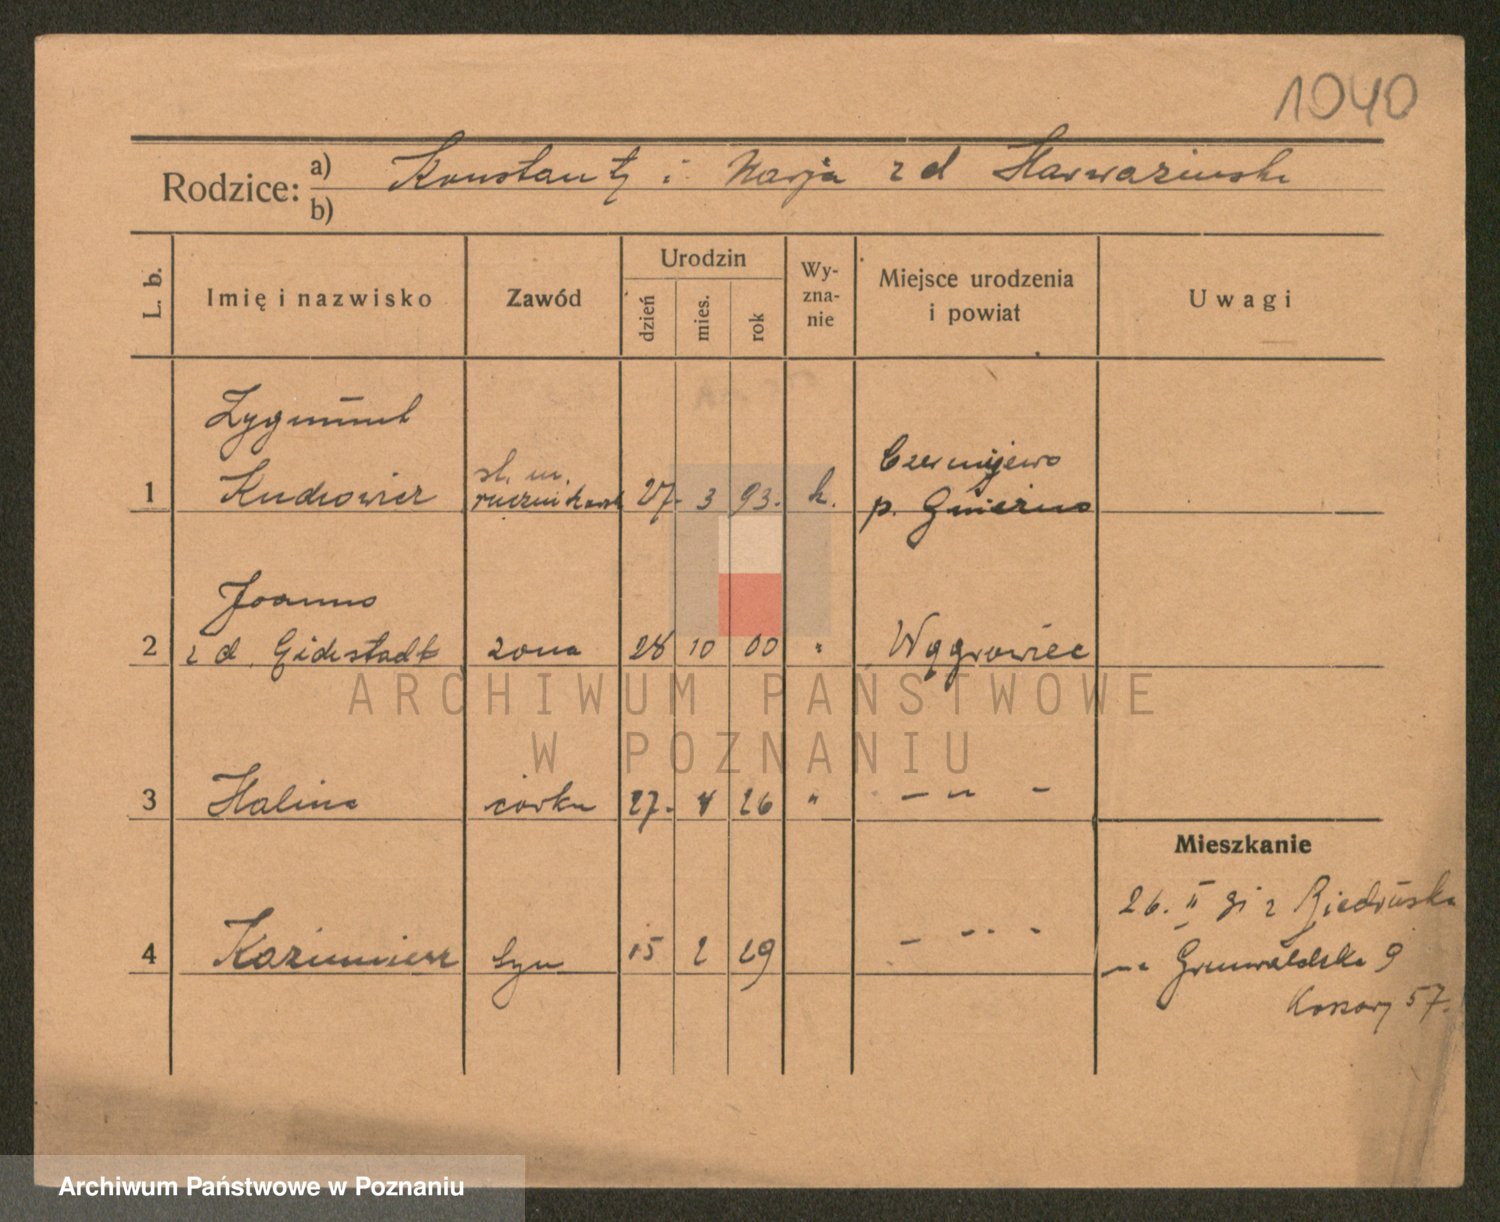 1040
Rodzice: a) Konstanty i Marja z d
b)
L. b.
Imię i nazwisko
Zawód
Urodzin
dzień
mies.
rok
Wy-
zna-
nie
Miejsce urodzenia
i powiat
Uwagi
Zygmunt
st. m. Czerniejewo
1 27. 3 93. k. p. Gniezno
Joanna
2 z d. żona 28 10 00 " Wągrowiec
3 Halina córka 27. 4 26 " — " —
Mieszkanie
4 Kazimierz syn 15 2 29 — " —
26. II z Biedruska
na Grunwaldzka 9
Koszary 57.
ARCHIWUM PAŃSTWOWE
W POZNANIU
Archiwum Państwowe w Poznaniu